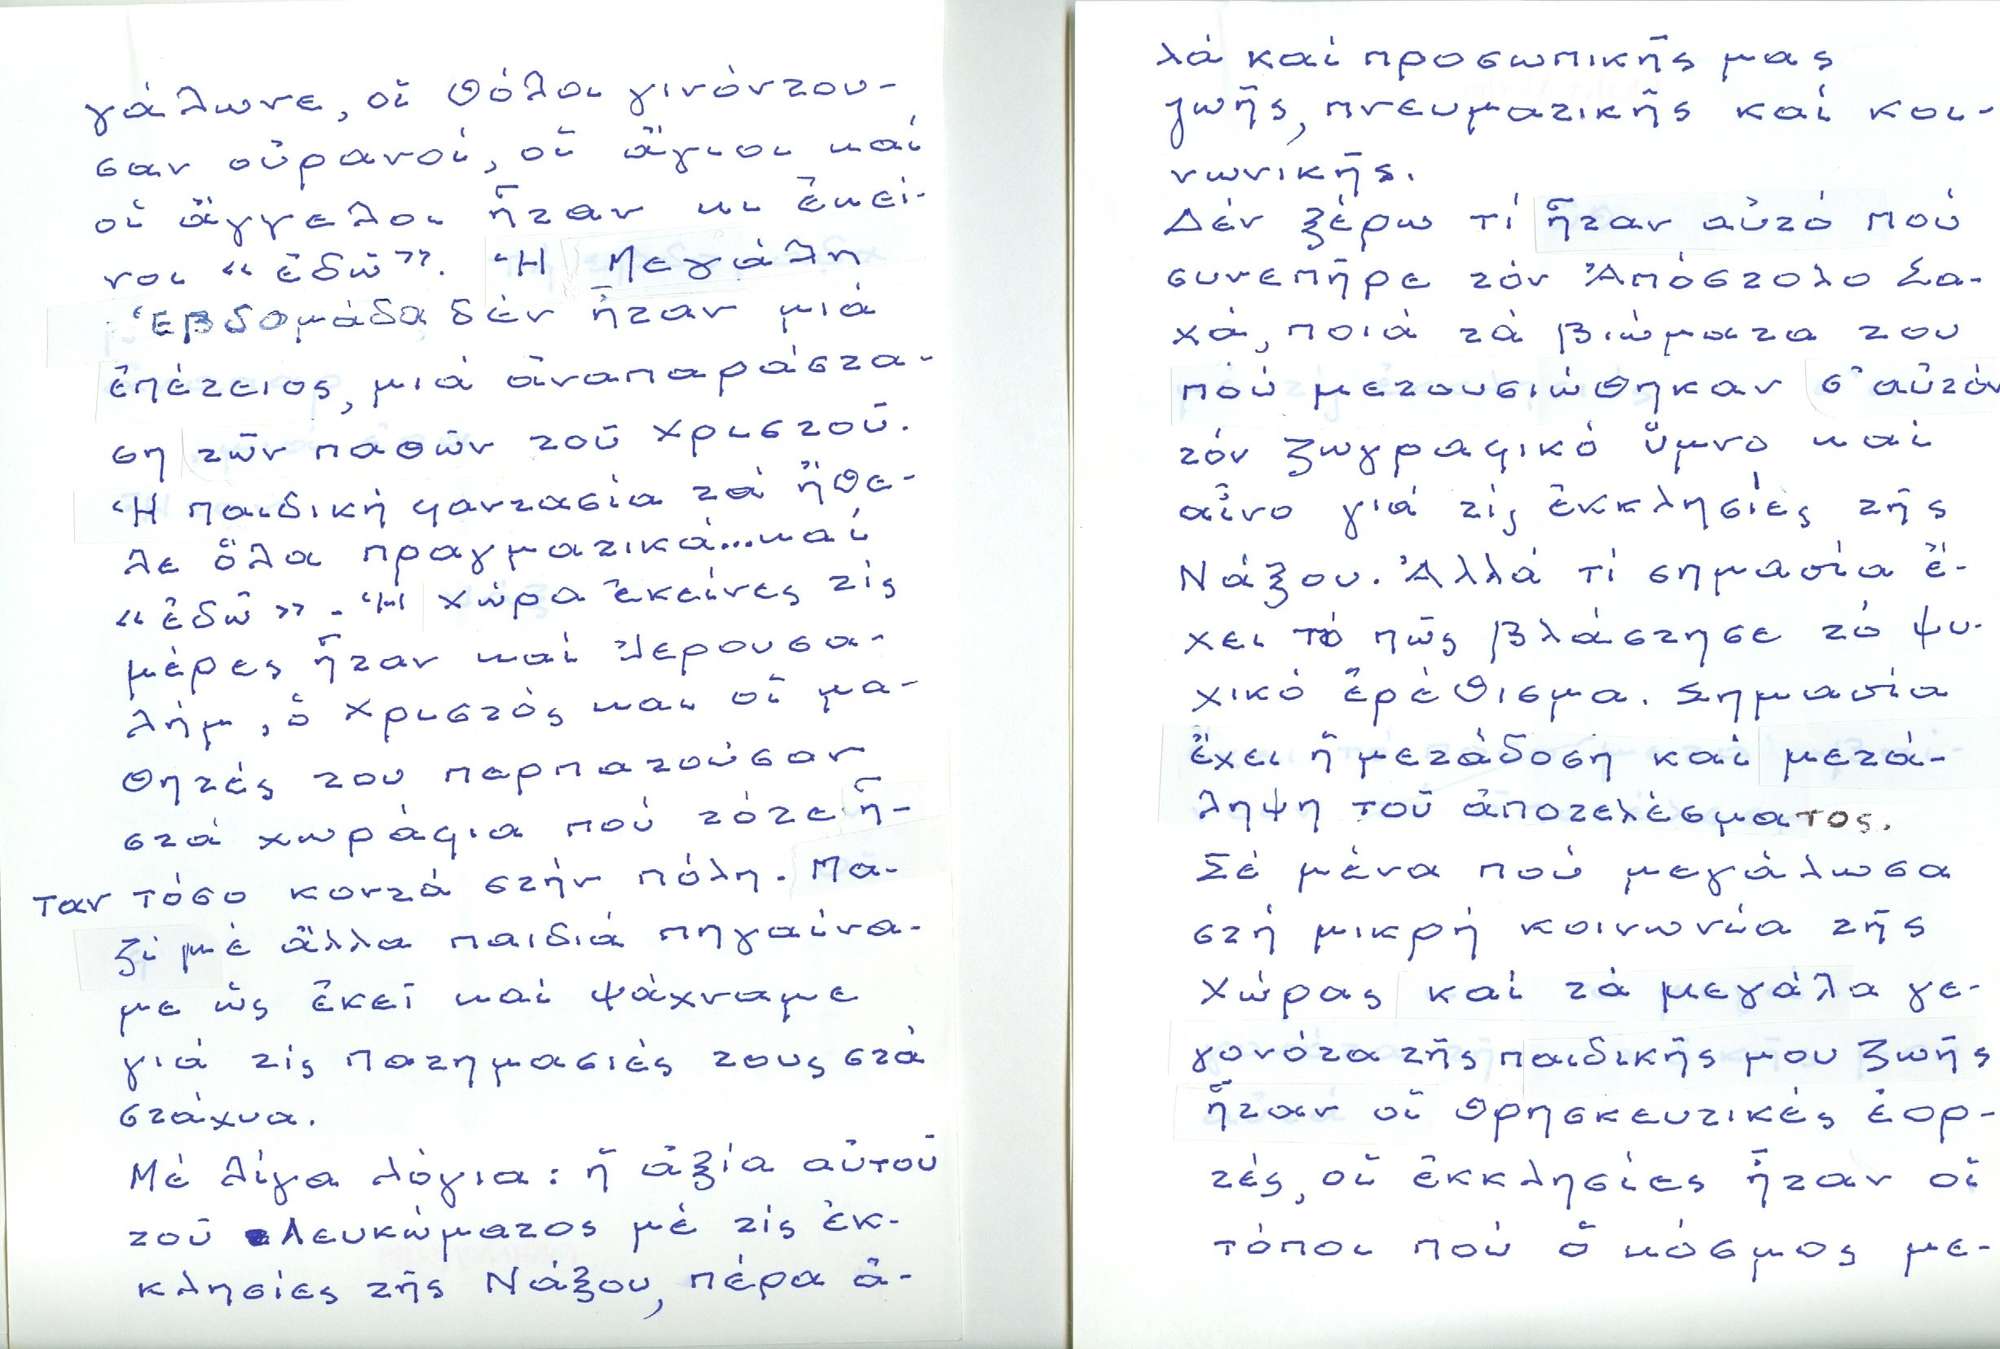 γάλωνε, οἱ θόλοι γινόντου-
σαν οὐρανοί, οἱ ἅγιοι καί
οἱ ἄγγελοι ἦταν κι ἐκεῖ-
νοι «ἐδῶ». Ἡ Μεγάλη
Ἑβδομάδα δέν ἦταν μιά
ἐπέτειος, μιά ἀναπαράστα-
ση τῶν παθῶν τοῦ Χριστοῦ.
Ἡ παιδική φαντασία τά ἤθε-
λε ὅλα πραγματικά...καί
«ἐδῶ». Ἡ Χώρα ἐκεῖνες τίς
μέρες ἦταν καί Ἱερουσα-
λήμ, ὁ Χριστός και οἱ μα-
θητές του περπατοῦσαν
στά χωράφια πού τότε ἦ-
ταν τόσο κοντά στήν πόλη. Μα-
ζί μέ ἄλλα παιδιά πηγαίνα-
με ὥς ἐκεῖ καί ψάχναμε
γιά τίς πατημασιές τους στά
στάχυα.
Μέ λίγα λόγια: ἡ ἀξία αὐτοῦ
τοῦ λευκώματος μέ τίς ἐκ-
κλησίες τῆς Νάξου, πέρα ἀ-
λά καί προσωπικῆς μας
ζωῆς, πνευματικῆς καί κοι-
νωνικῆς.
Δέν ξέρω τί ἦταν αὐτό πού
συνεπῆρε τόν Ἀπόστολο Σα-
χά, ποιά τά βιώματα του
πού μετουσιώθηκαν σ' αὐτόν
τόν ζωγραφικό ὕμνο καί
αἶνο γιά τίς ἐκκλησίες τῆς
Νάξου. Ἀλλά τί σημασία ἔ-
χει τό πῶς βλάστησε τό ψυ-
χικό ἐρέθισμα. Σημασία
ἔχει ἡ μετάδοση καί μετά-
ληψη τοῦ ἀποτελέσματος.
Σέ μένα πού μεγάλωσα
στή μικρή κοινωνία τῆς
Χώρας καί τά μεγάλα γε-
γονότα τῆς παιδικῆς μου ζωῆς
ἦταν οἱ θρησκευτικές ἑορ-
τές, οἱ ἐκκλησίες ἦταν οἱ
τόποι πού ὁ κόσμος με-